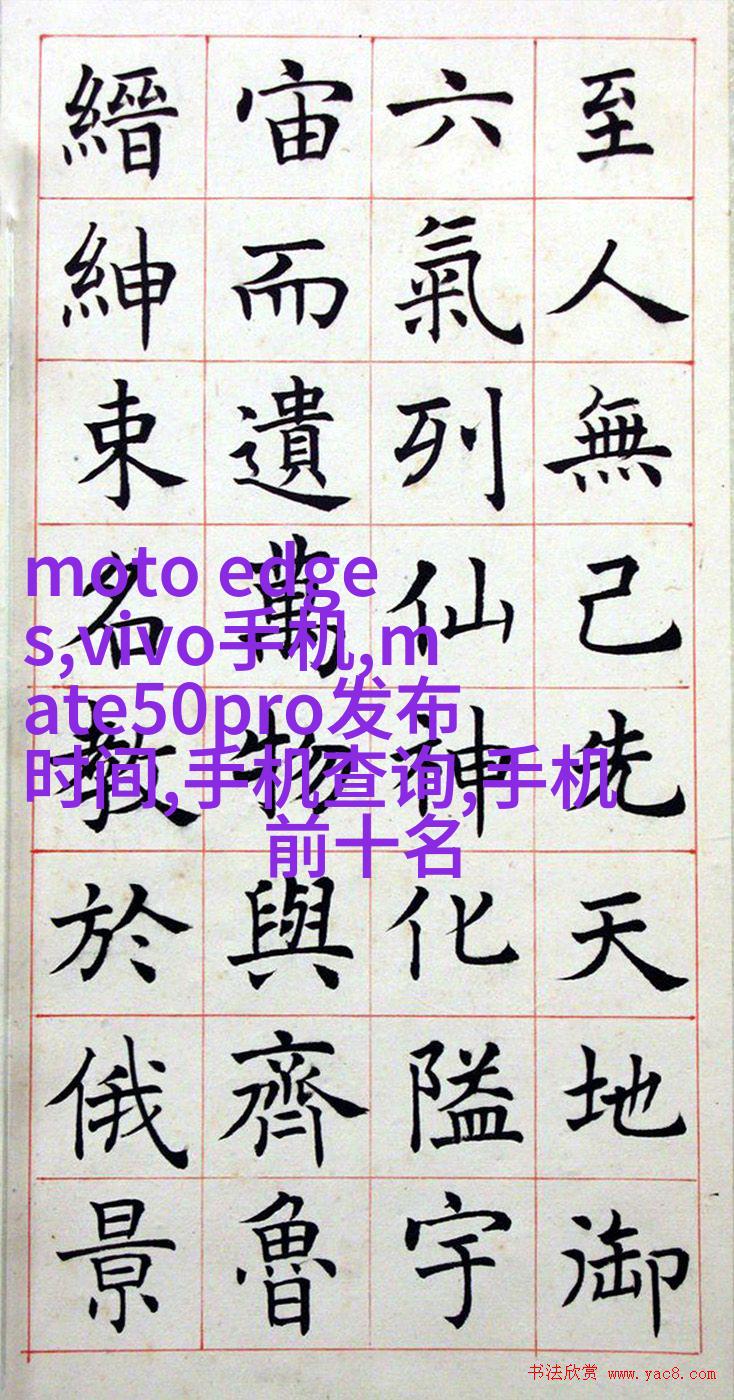 至人無己先天地御
六氣列仙神化隘宇
宙而遺萬物與齊魯
縉紳束名教於俄景
moto edge
s,vivo手机,m
ate50pro发布
时间,手机查询,手机
前十名
书法欣赏 www.yac8.com